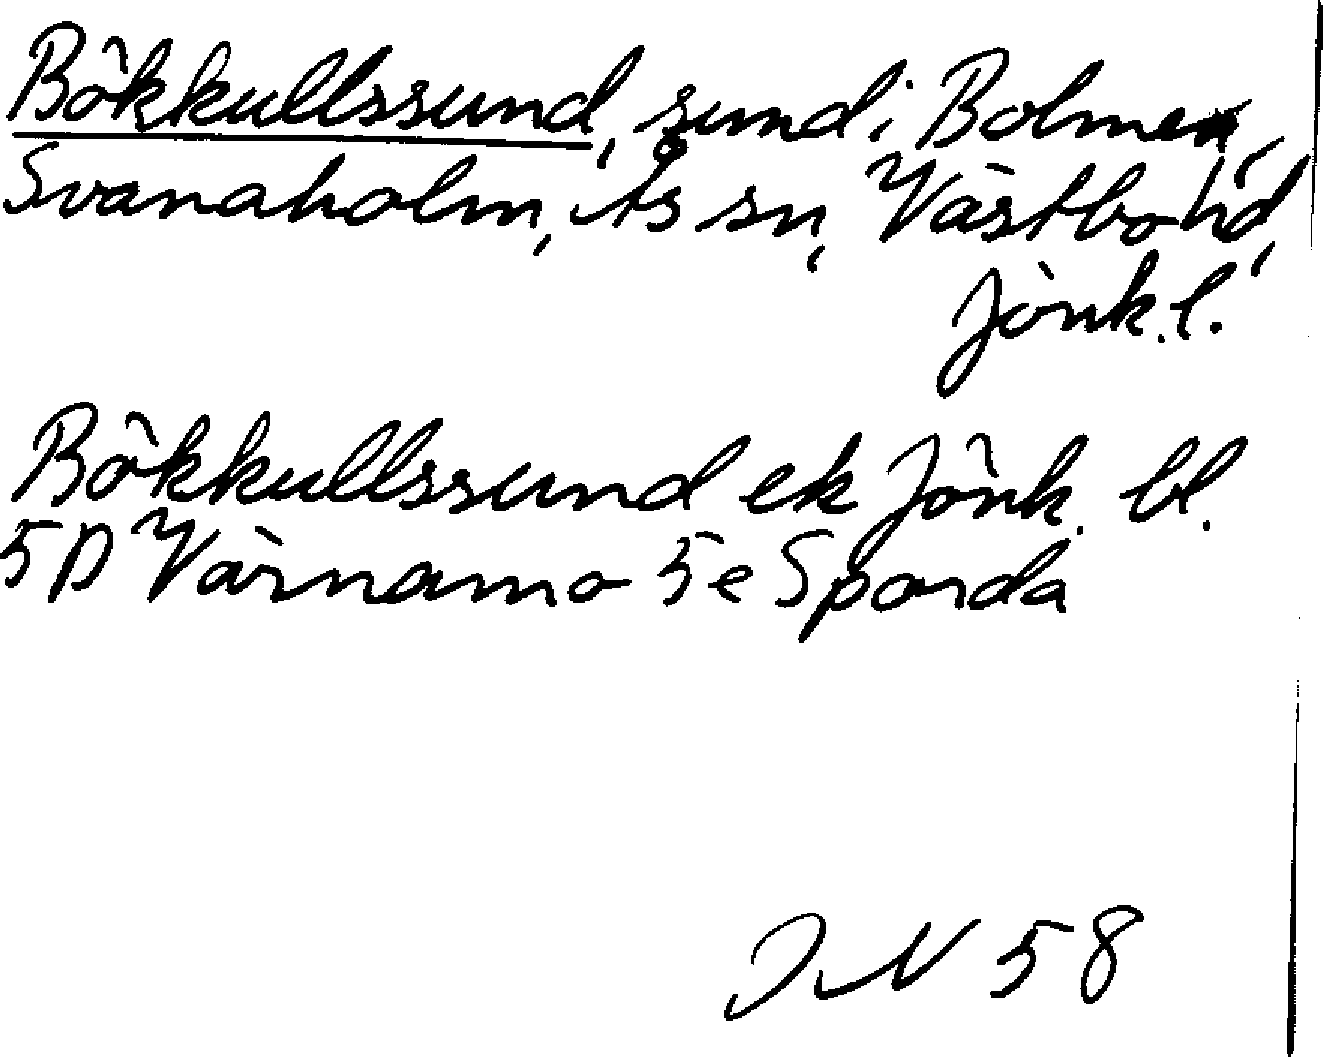 Bökkullssund, sund i Bolmen,
Svanaholm, Ås sn, Västbo hd,
Jönk.l.
Bökkullssund ek Jönk. bl.
5D Värnamo 5e Sporda
IN 58